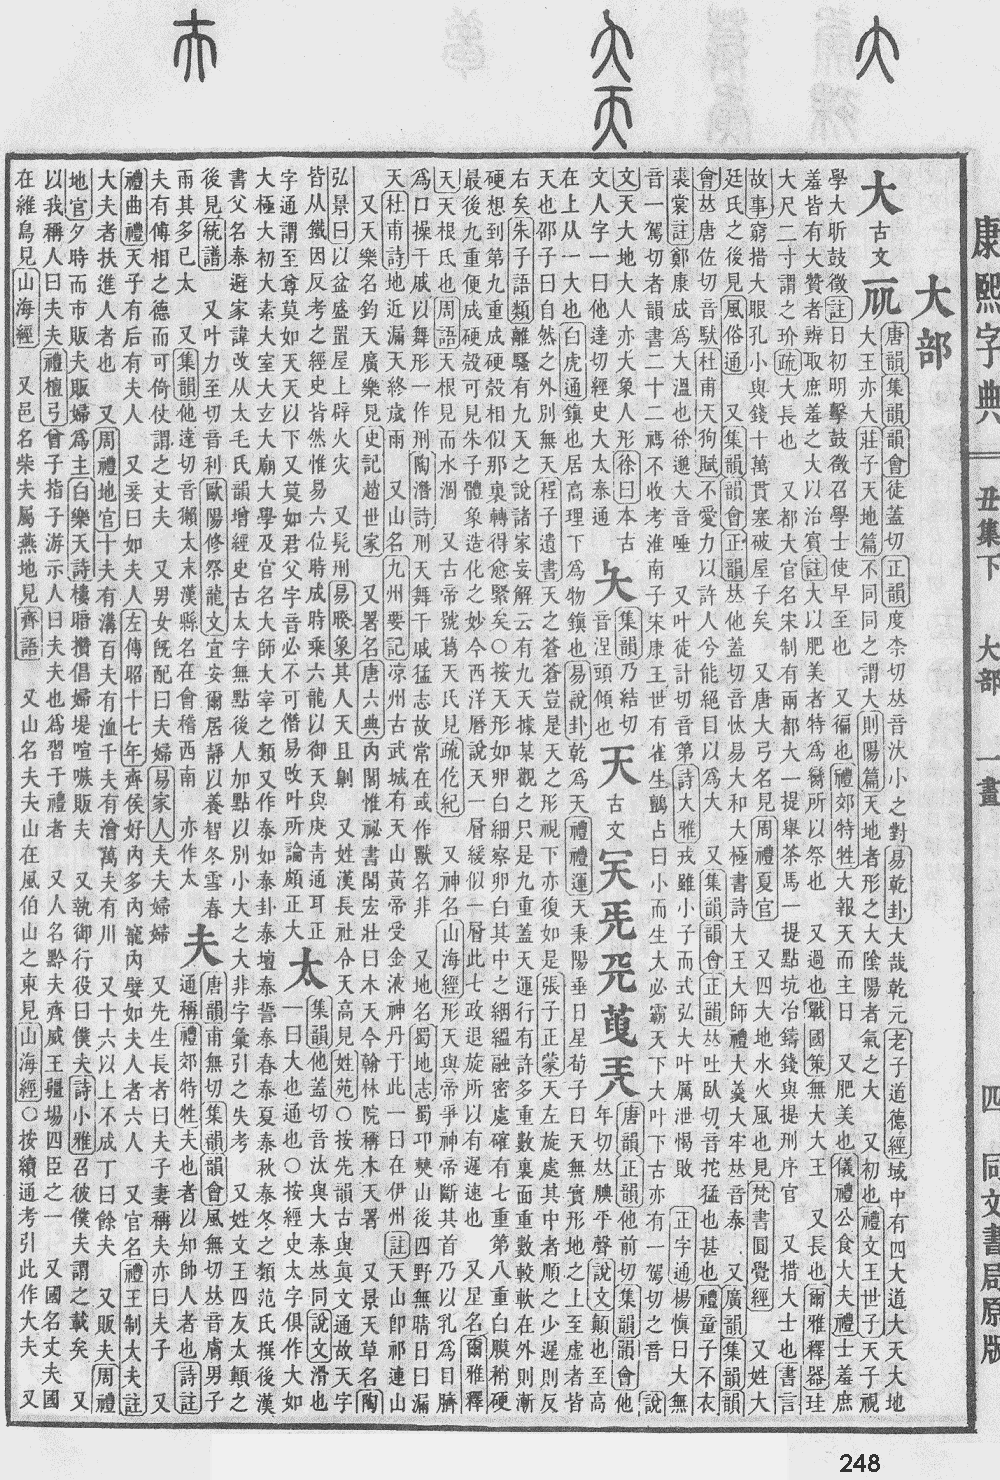 康熙字典 丑集下 大部 一畫 四 同文書局原版
大部
大 古文 𠘲 唐韻集韻韻會徒蓋切正韻度柰切𠀤音汏小之對易乾卦大哉乾元老子道德經域中有四大道大天大地
大王亦大莊子天地篇不同同之謂大則陽篇天地者形之大陰陽者氣之大 又初也禮文王世子天子視
學大昕鼓徵註日初明擊鼓徵召學士使早至也 又徧也禮郊特牲大報天而主日 又肥美也儀禮公食大夫禮士羞庶
羞皆有大贊者辨取庶羞之大以治賓註大以肥美者特爲臠所以祭也 又過也戰國策無大大王 又長也爾雅釋器珪
大尺二寸謂之玠疏大長也 又都大官名宋制有兩都大一提舉茶馬一提點坑冶鑄錢與提刑序官 又措大士也書言
故事窮措大眼孔小與錢十萬貫塞破屋子矣 又唐大弓名見周禮夏官 又四大地水火風也見梵書圓覺經 又姓大
廷氏之後見風俗通 又集韻韻會正韻𠀤他蓋切音忕易大和大極書詩大王大師禮大羹大牢𠀤音泰 又廣韻集韻韻
會𠀤唐佐切音馱杜甫天狗賦不愛力以許人兮能絕目以爲大 又集韻韻會正韻𠀤吐臥切音拕猛也甚也禮童子不衣
裘裳註鄭康成爲大溫也徐邈大音唾 又叶徒計切音第詩大雅戎雖小子而式弘大叶厲泄愒敗 正字通楊愼曰大無
音一駕切者韻書二十二禡不收考淮南子宋康王世有雀生鸇占曰小而生大必霸天下大叶下古亦有一駕切之音 說
文天大地大人亦大象人形徐曰本古
文人字一曰他達切經史大太泰通 夨 集韻乃結切
音涅頭傾也 天 古文 𠕹𠀡𠀘𠑺𠀗 唐韻正韻他前切集韻韻會他
年切𠀤腆平聲說文顚也至高
在上从一大也白虎通鎭也居高理下爲物鎭也易說卦乾爲天禮禮運天秉陽垂日星荀子曰天無實形地之上至虛者皆
天也邵子曰自然之外別無天程子遺書天之蒼蒼豈是天之形視下亦復如是張子正蒙天左旋處其中者順之少遲則反
右矣朱子語類離騷有九天之說諸家妄解云有九天據某觀之只是九重蓋天運行有許多重數裏面重數較軟在外則漸
硬想到第九重成硬殼相似那裏轉得愈緊矣○按天形如卵白細察卵白其中之絪縕融密處確有七重第八重白膜稍硬
最後九重便成硬殼可見朱子體象造化之妙今西洋曆說天一層緩似一層此七政退旋所以有遲速也 又星名爾雅釋
天天根氐也周語天根見而水涸 又古帝號葛天氏見疏仡紀 又神名山海經形天與帝爭神帝斷其首乃以乳爲目臍
爲口操干戚以舞形一作刑陶潛詩刑天舞干戚猛志故常在或作獸名非 又地名蜀地志蜀邛僰山後四野無晴日曰漏
天杜甫詩地近漏天終歲雨 又山名九州要記凉州古武城有天山黃帝受金液神丹于此一曰在伊州註天山卽祁連山
又天樂名鈞天廣樂見史記趙世家 又署名唐六典內閣惟祕書閣宏壯曰木天今翰林院稱木天署 又景天草名陶
弘景曰以盆盛置屋上辟火災 又髡刑易睽象其人天且劓 又姓漢長社令天高見姓苑○按先韻古與眞文通故天字
皆从鐵因反考之經史皆然惟易六位時成時乘六龍以御天與庚靑通耳正
字通謂至尊莫如天天以下又莫如君父字音必不可僭易攺叶所論頗正大 太 集韻他蓋切音汰與大泰𠀤同說文滑也
一曰大也通也○按經史太字俱作大如
大極大初大素大室大玄大廟大學及官名大師大宰之類又作泰如泰卦泰壇泰誓泰春泰夏泰秋泰冬之類范氏撰後漢
書父名泰避家諱改从太毛氏韻增經史古太字無點後人加點以別小大之大非字彙引之失考 又姓文王四友太顚之
後見統譜 又叶力至切音利歐陽修祭龍文宜安爾居靜以養智冬雪春
雨其多已太 又集韻他達切音獺太末漢縣名在會稽西南 亦作太 夫 唐韻甫無切集韻韻會風無切𠀤音膚男子
通稱禮郊特牲夫也者以知帥人者也詩註
夫有傅相之德而可倚仗謂之丈夫 又男女旣配曰夫婦易家人夫夫婦婦 又先生長者曰夫子妻稱夫亦曰夫子 又
禮曲禮天子有后有夫人 又妾曰如夫人左傳昭十七年齊侯好內多內寵內嬖如夫人者六人 又官名禮王制大夫註
大夫者扶進人者也 又周禮地官十夫有溝百夫有洫千夫有澮萬夫有川 又十六以上不成丁曰餘夫 又販夫周禮
地官夕時而市販夫販婦爲主白樂天詩樓暗攢倡婦堤喧嗾販夫 又執御行役曰僕夫詩小雅召彼僕夫謂之載矣 又
以我稱人曰夫夫禮檀弓曾子指子游示人曰夫夫也爲習于禮者 又人名黔夫齊威王疆場四臣之一 又國名丈夫國
在維鳥見山海經 又邑名柴夫屬燕地見齊語 又山名夫夫山在風伯山之東見山海經○按續通考引此作大夫 又
248